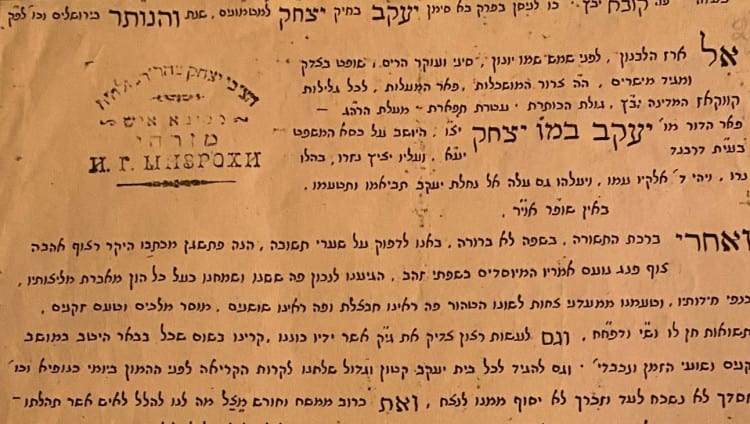 פה קובה יבץ׳ . כו לניסן בפרק בא סימן יעקב בחיק יצחק למטמונים , שנת והנותר בירושלים וכו׳ לפ״ק
אל ארז הלבנון , לפני שמש שמו ינון , סיני ועוקר הרים , שופט בצדק
ומגיד מישרים , ה״ה צרור המושכלות , פאר המעלות , לכל גלילות
קווקאז המדינה יב״ץ , גולת הכותרת . עטרת תפארת – מעלת הרה״ג –
פאר הדור מו׳ יעקב במו׳ יצחק יצ״ו , היושב על כסא המשפט
בעי״ת דרבנד יע״א , ועליו יציץ נזרו , בהלו
נרו , ויהי ד׳ אלקיו עמו , ויעלהו גם עלה אל נחלת יעקב תביאמו ותטעמו ,
באין שופר אוי״ר .
הצבי יצחק
מזרחי
И. Г. МИЗРОХИ
ואחרי ברכת התשורה , בשפה לא ברורה , באנו לדפוק על שערי תשובה , הנה פתשגן מכתבו היקר רצוף אהבה
צוף פנג נועם אמריו המיוסדים בשפתי זהב , הגיענו לנכון פה ששנו ושמחנו כעל כל הון מאברת מליצותיו ,
כנפי חידותיו , וטעמנו ממעדני צחות לשונו הטהור פה ראינו חבצלת ופה ראינו שושנים , מוסר מלכים וטעם זקנים ,
תשואות חן לו , וגם לעשות רצון צדיק את אשר ידיו כוננו , קרינו בשום שכל בבאר היטב במושב
זקנים ושועי הזמן ונכבדי׳ . וגם להגיד לכל בית יעקב קטון וגדול שלחנו לקרות הקריאה לפני ההמון ביומי כנופיא וכו׳
חסדך לא נשכח לעד וזכרך לא יסוף ממנו לנצח , ואת כרוב ממשח וחורש מצל מה לנו להלל לאיש אשר תהלתו –